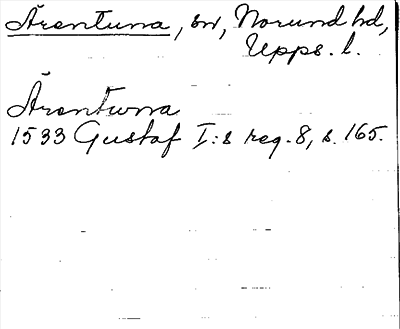 Ärentuna, sn, Norund hd,
Upps. l.
Ärentuna
1533 Gustaf I:s reg. 8, s. 165.